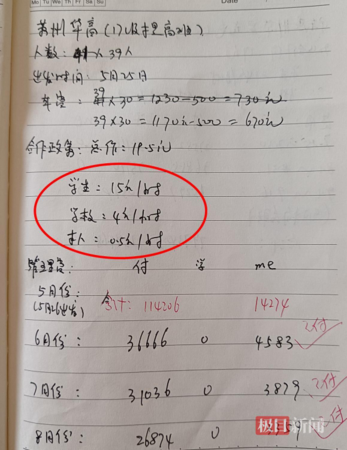 Mo Tu We Th Fr Sa Su
Date
苏州华高(17级提高班)
人数: 41人 39人
出发时间: 5月25日
39
车费: 41人×30=1230-500=730元
39×30=1170元-500=670元
合作政策: 总价: 19.5元
学生: 15元/时
学校: 4元/时
本人: 0.5元/时
管理费: 付 学 me
5月份: 合计: 114206 14274
(5月26出发)
6月份: 36666 0 4583 已付
7月份: 31036 0 3879 已付
8月份: 26874 0 已付
极目新闻